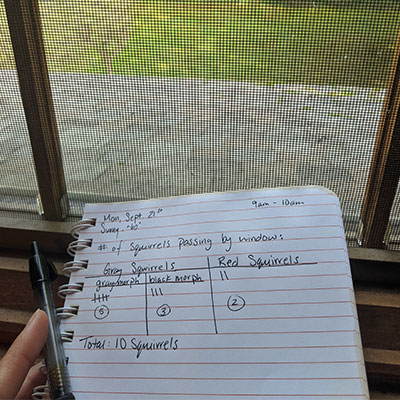 9am - 10am
Mon, Sept. 21st
Sunny
# of squirrels passing by window:
Gray Squirrels Red Squirrels
gray morph black morph
5 3 2
Total: 10 Squirrels